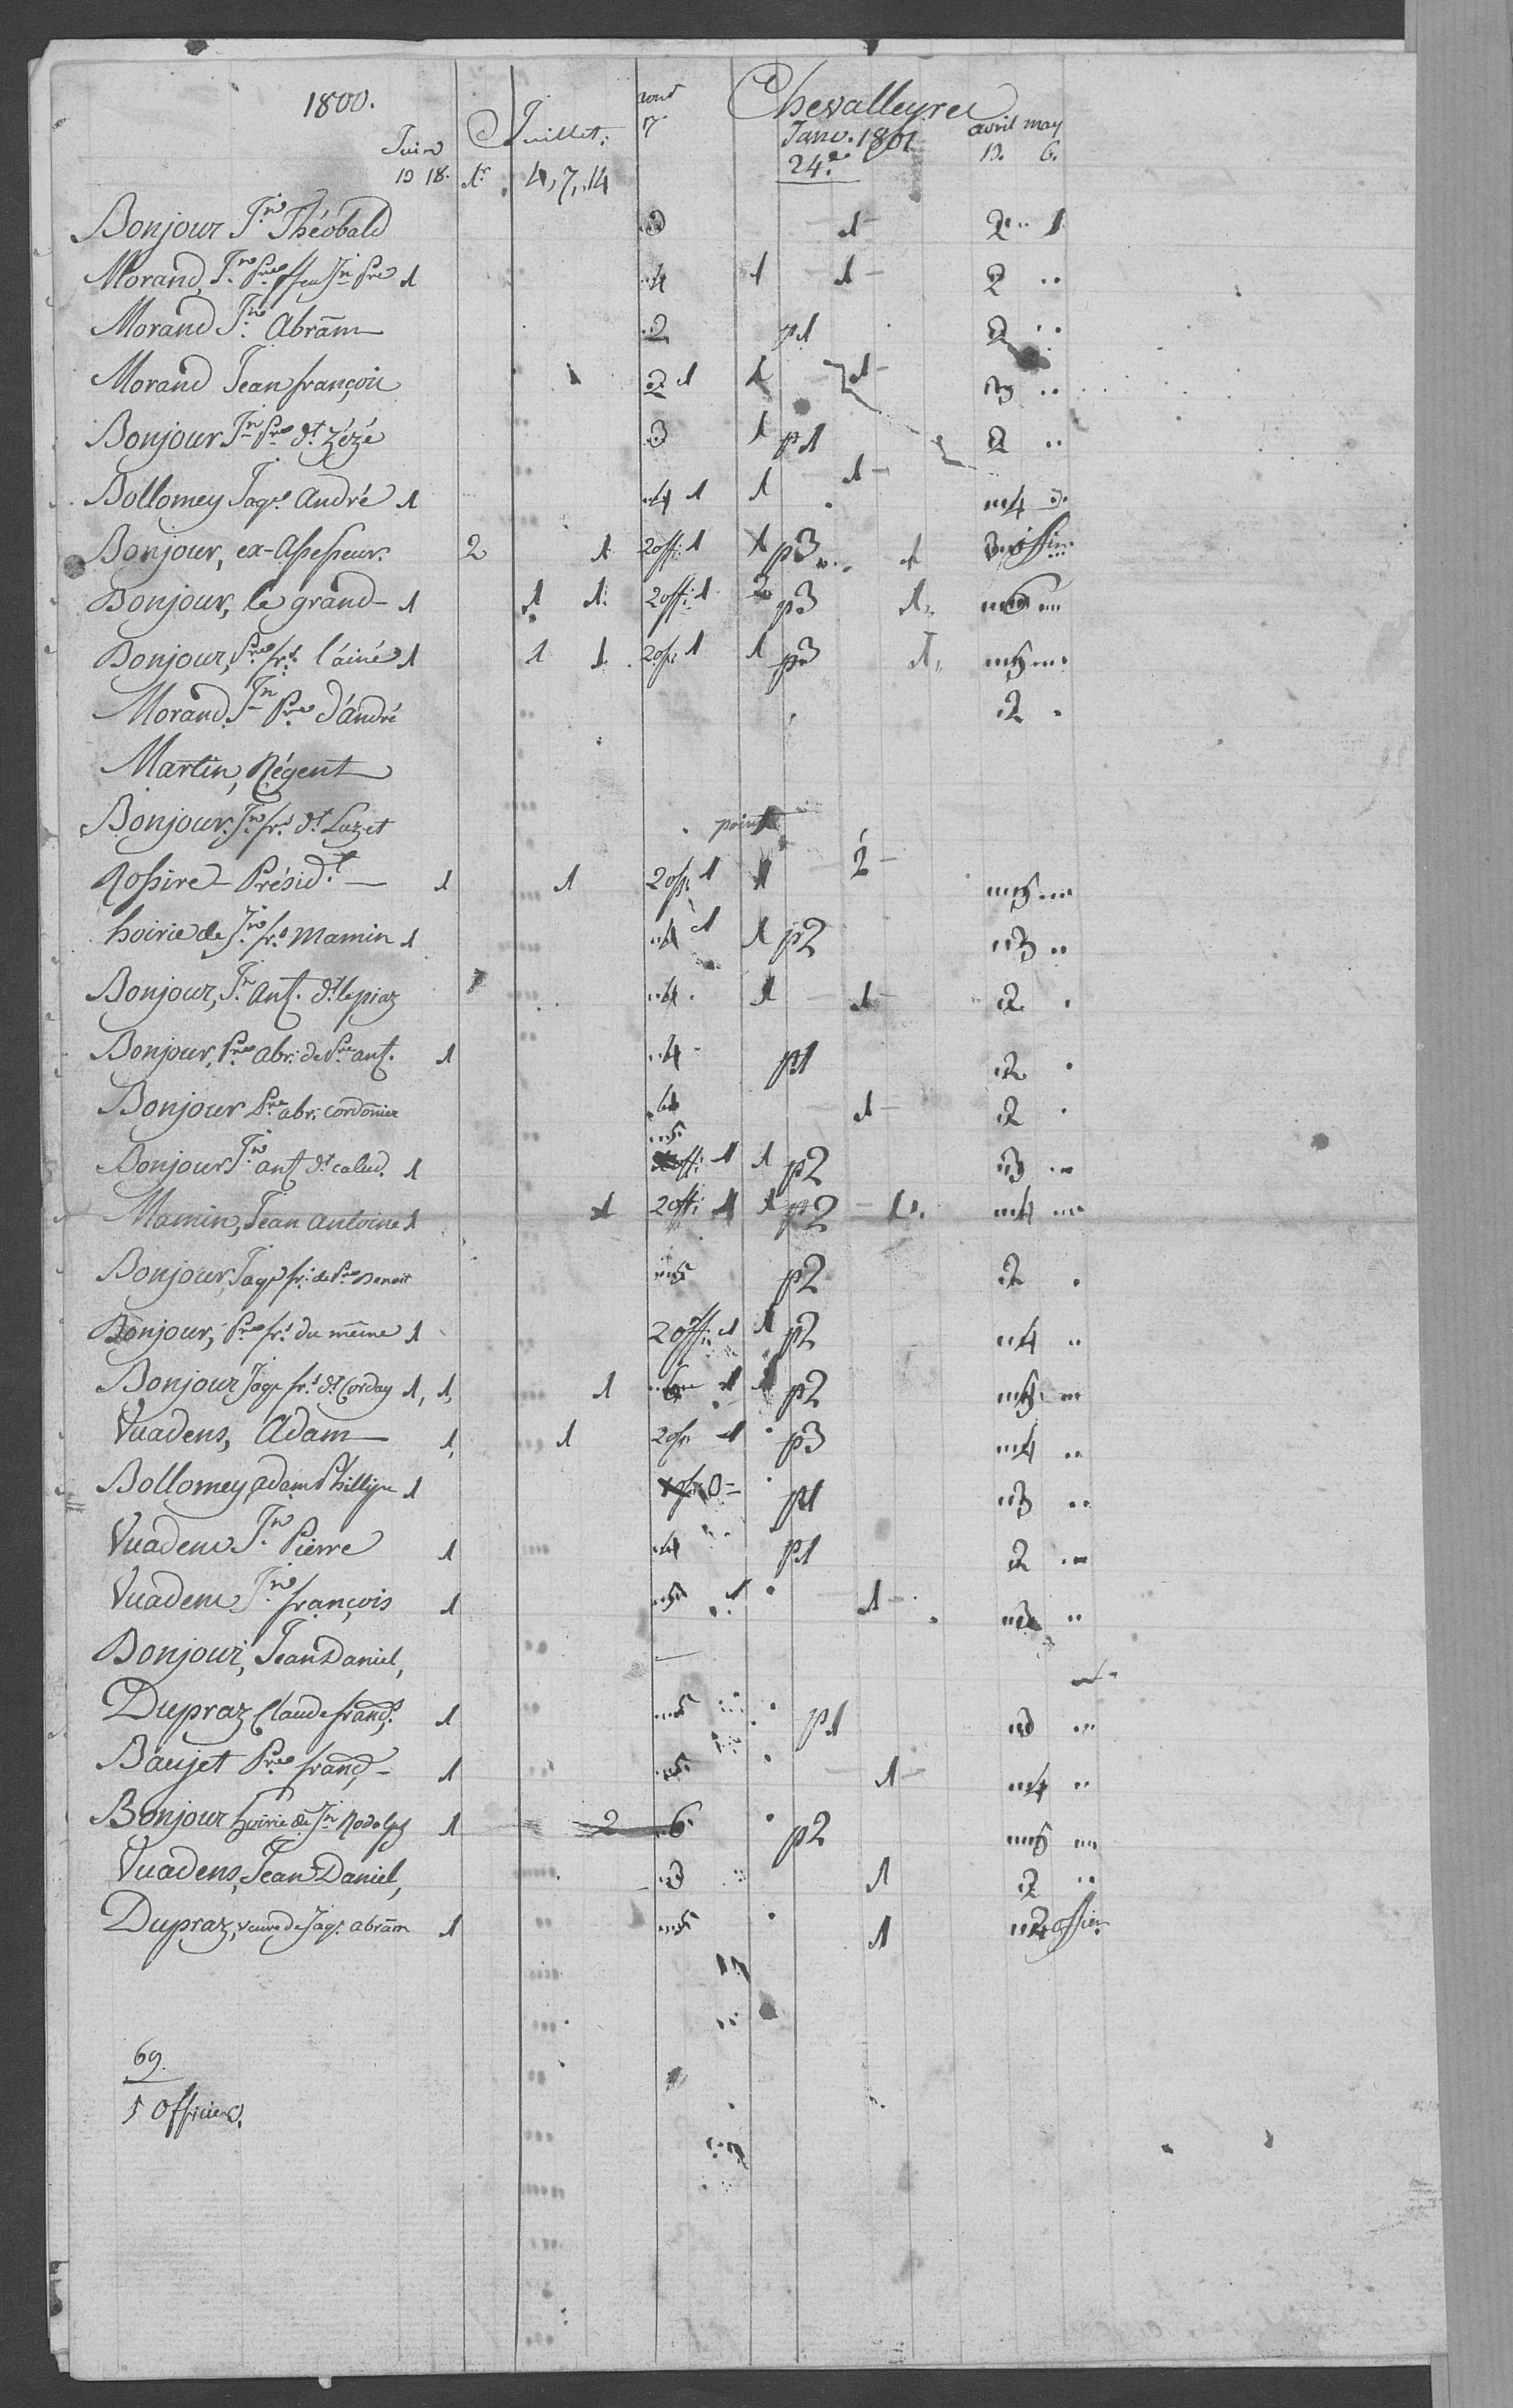 1800. Chevalleyres
Juin Juillet: aout Janv. 1801 avril may
18. 1r 4, 7, 14 7. 24e 6.
Bonjour Jn Théobald 3 1 2 1
Morand, Jn Pre ffeu Jn Pre 1 4 1 1 2
Morand Jn Abram 2 p1 2
Morand Jean françois 2 1 1 1 3
Bonjour Jn Pre dt Zézé 3 1 p1 2
Bollomey Jaqs André 1 4 1 1 1 4
Bonjour, ex-Assesseur. 2 1 2 offi: 1 1 p3 1 3
Bonjour, le grand 1 1 1 2 offi: 1 2 p3 1 6
Bonjour, Pre frs l'ainé 1 1 1 2 of: 1 1 p3 1 5
Morand Jn Pre d'andré 2
Martin, Régent
Bonjour Jn frs dt Luzet point
Rossire Présidt 1 1 2 of: 1 1 2 5
hoirie de Jn frs Mamin 1 4 1 1 p2 3
Bonjour, Jn Ant. dt lepiaz 4 1 1 2
Bonjour, Pre abr. de Pre ant. 1 4 p1 2
Bonjour Pre abr. cordonier 4 1 2
5
Bonjour Jn ant dt calud. 1 1 1 p2 3
Mamin, Jean Antoine 1 1 2 offi: 1 1 p2 1 4
Bonjour, Jaqs fr: de Pre Benoit 5 p2 2
Bonjour, Pre frs du même 1 2 offi: 1 1 p2 4
Bonjour Jaqs frs dt Corday 1, 1, 1 6 1 1 p2 5
Vuadens, Adam 1, 1 2 of: 1 p3 4
Bollomey, adam Phillipe 1 p1 3
Vuadens Jn Pierre 1 4 p1 2
Vuadens Jn françois 1 5 1 1 3
Bonjour, Jean Daniel,
Dupraz Claude frans. 1 5 p1 3
Baujet Pre franç 1 5 1 4
Bonjour hoirie de Jn Rodolph 1 2 6 p2 5
Vuadens, Jean Daniel, 3 1 2
Dupraz, veuve de Jaqs abram 1 5 1
69.
5 Officiers.